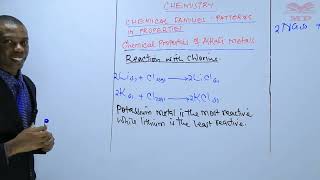 CHEMISTRY
CHEMICAL FAMILIES: PATTERNS
IN PROPERTIES
Chemical Properties of Alkali Metals
Reaction with Chlorine.
2Li(s) + Cl2(g) → 2LiCl(s)
2K(s) + Cl2(g) → 2KCl(s)
Potassium metal is the most reactive
while lithium is the least reactive.
2Na(s) +